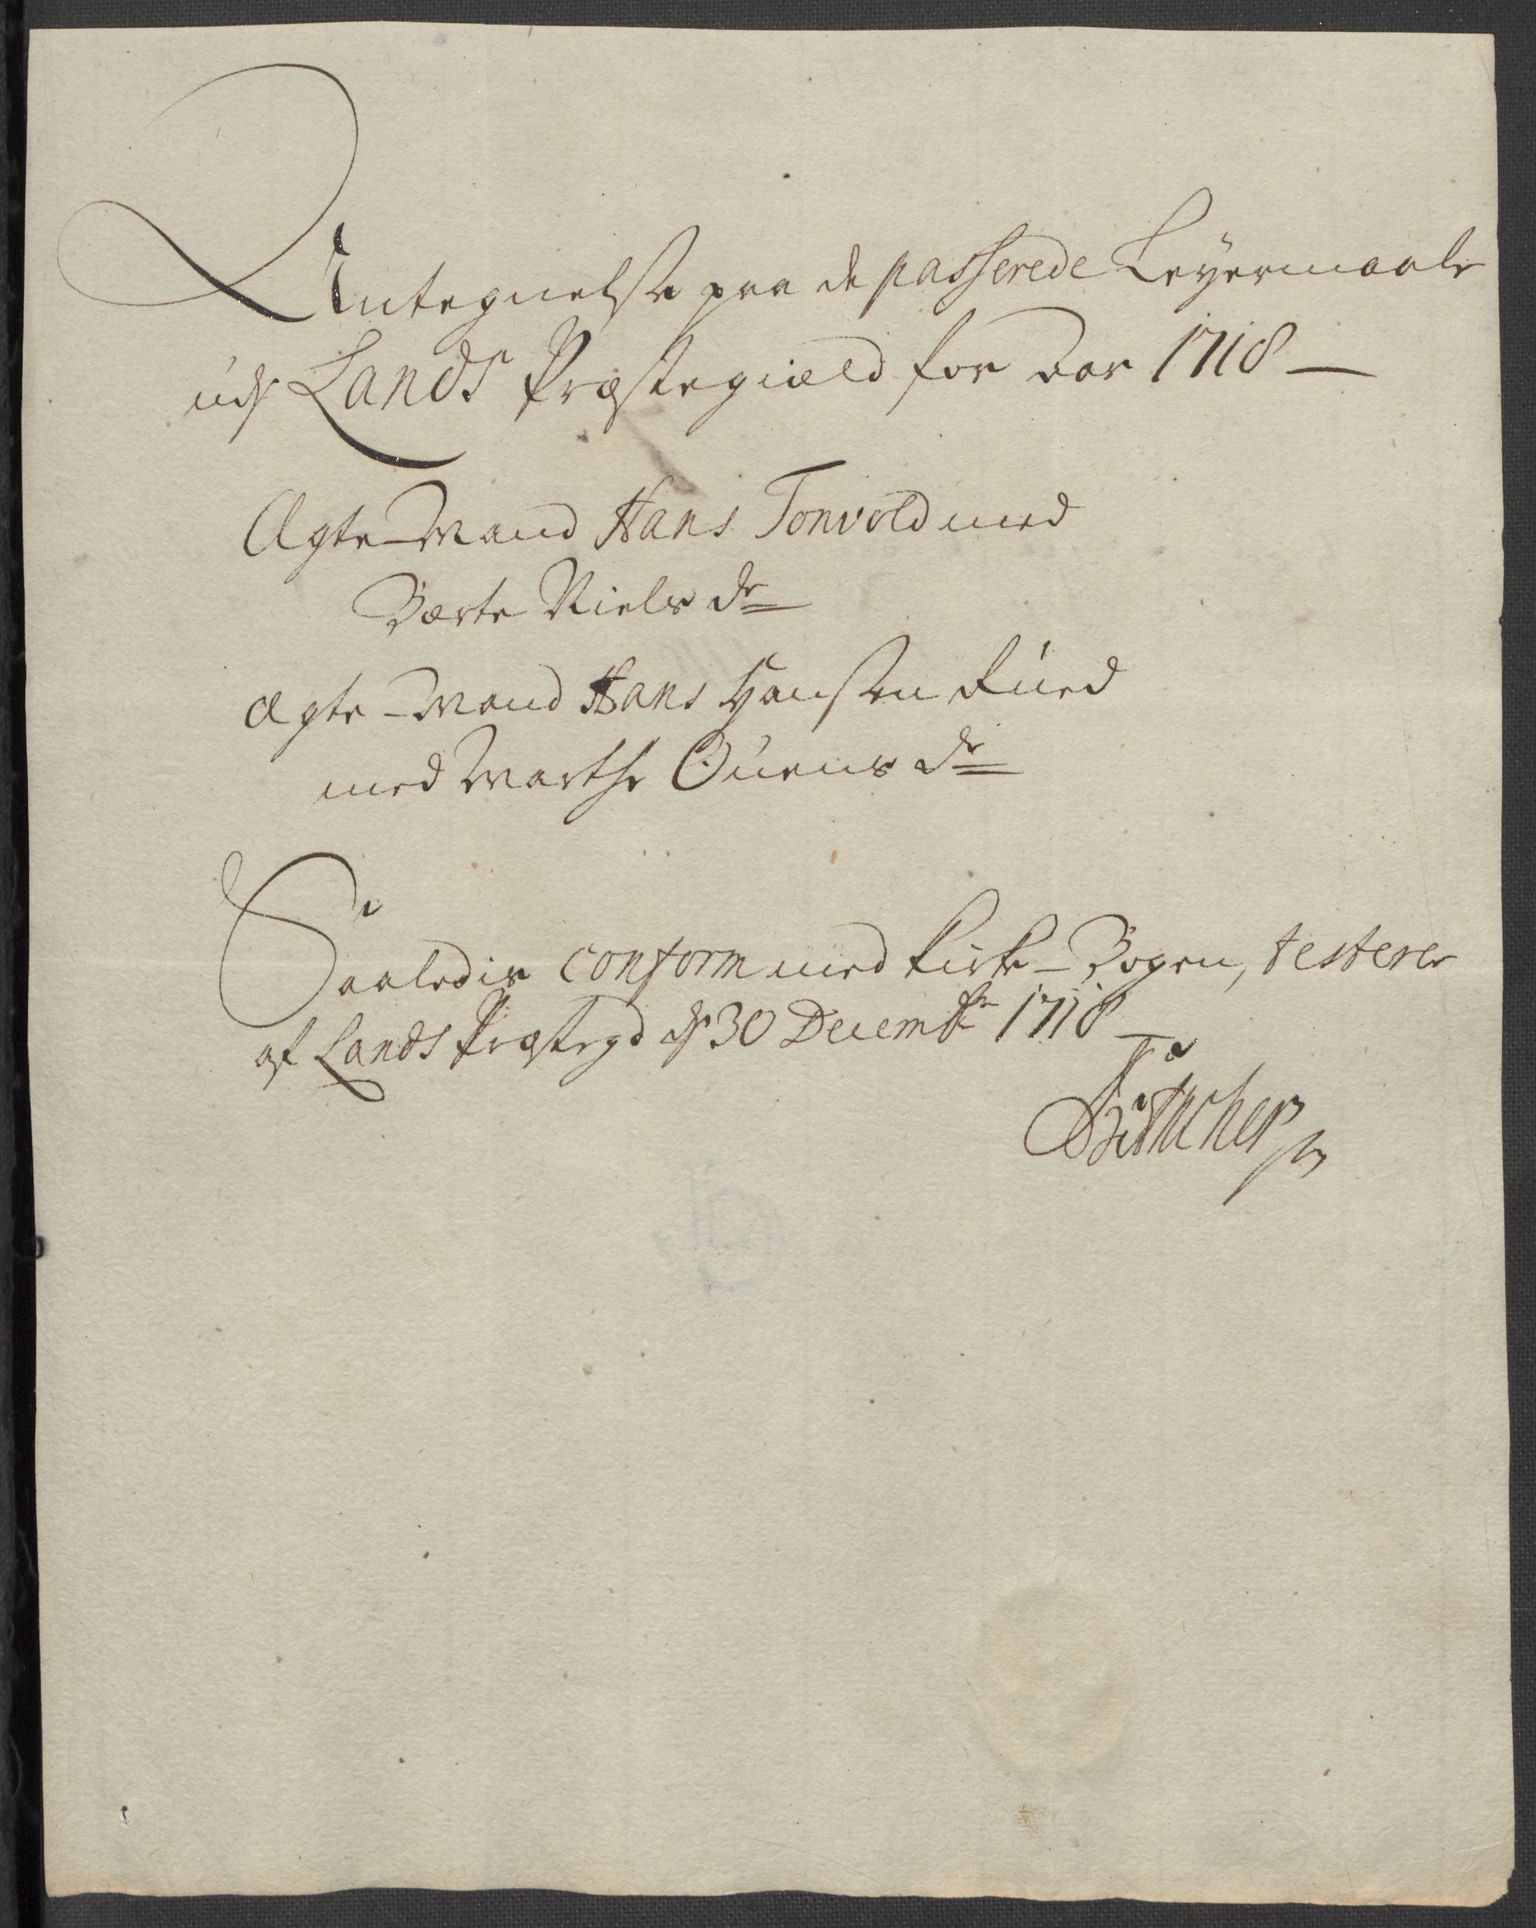 Antegnelse paa de passerede Leyermaale
udj Lands Præstegiæld for Aar 1718 —
Ægte-Mand Hans Tonvold med
Bærte Niels dr
Ægte-Mand Hans Hansen Rued
med Marthe Ouens dr
Saaledis conform med Kirke-Bogen, testerer
af Lands Præstegd dj 30 Decembr 1718 —